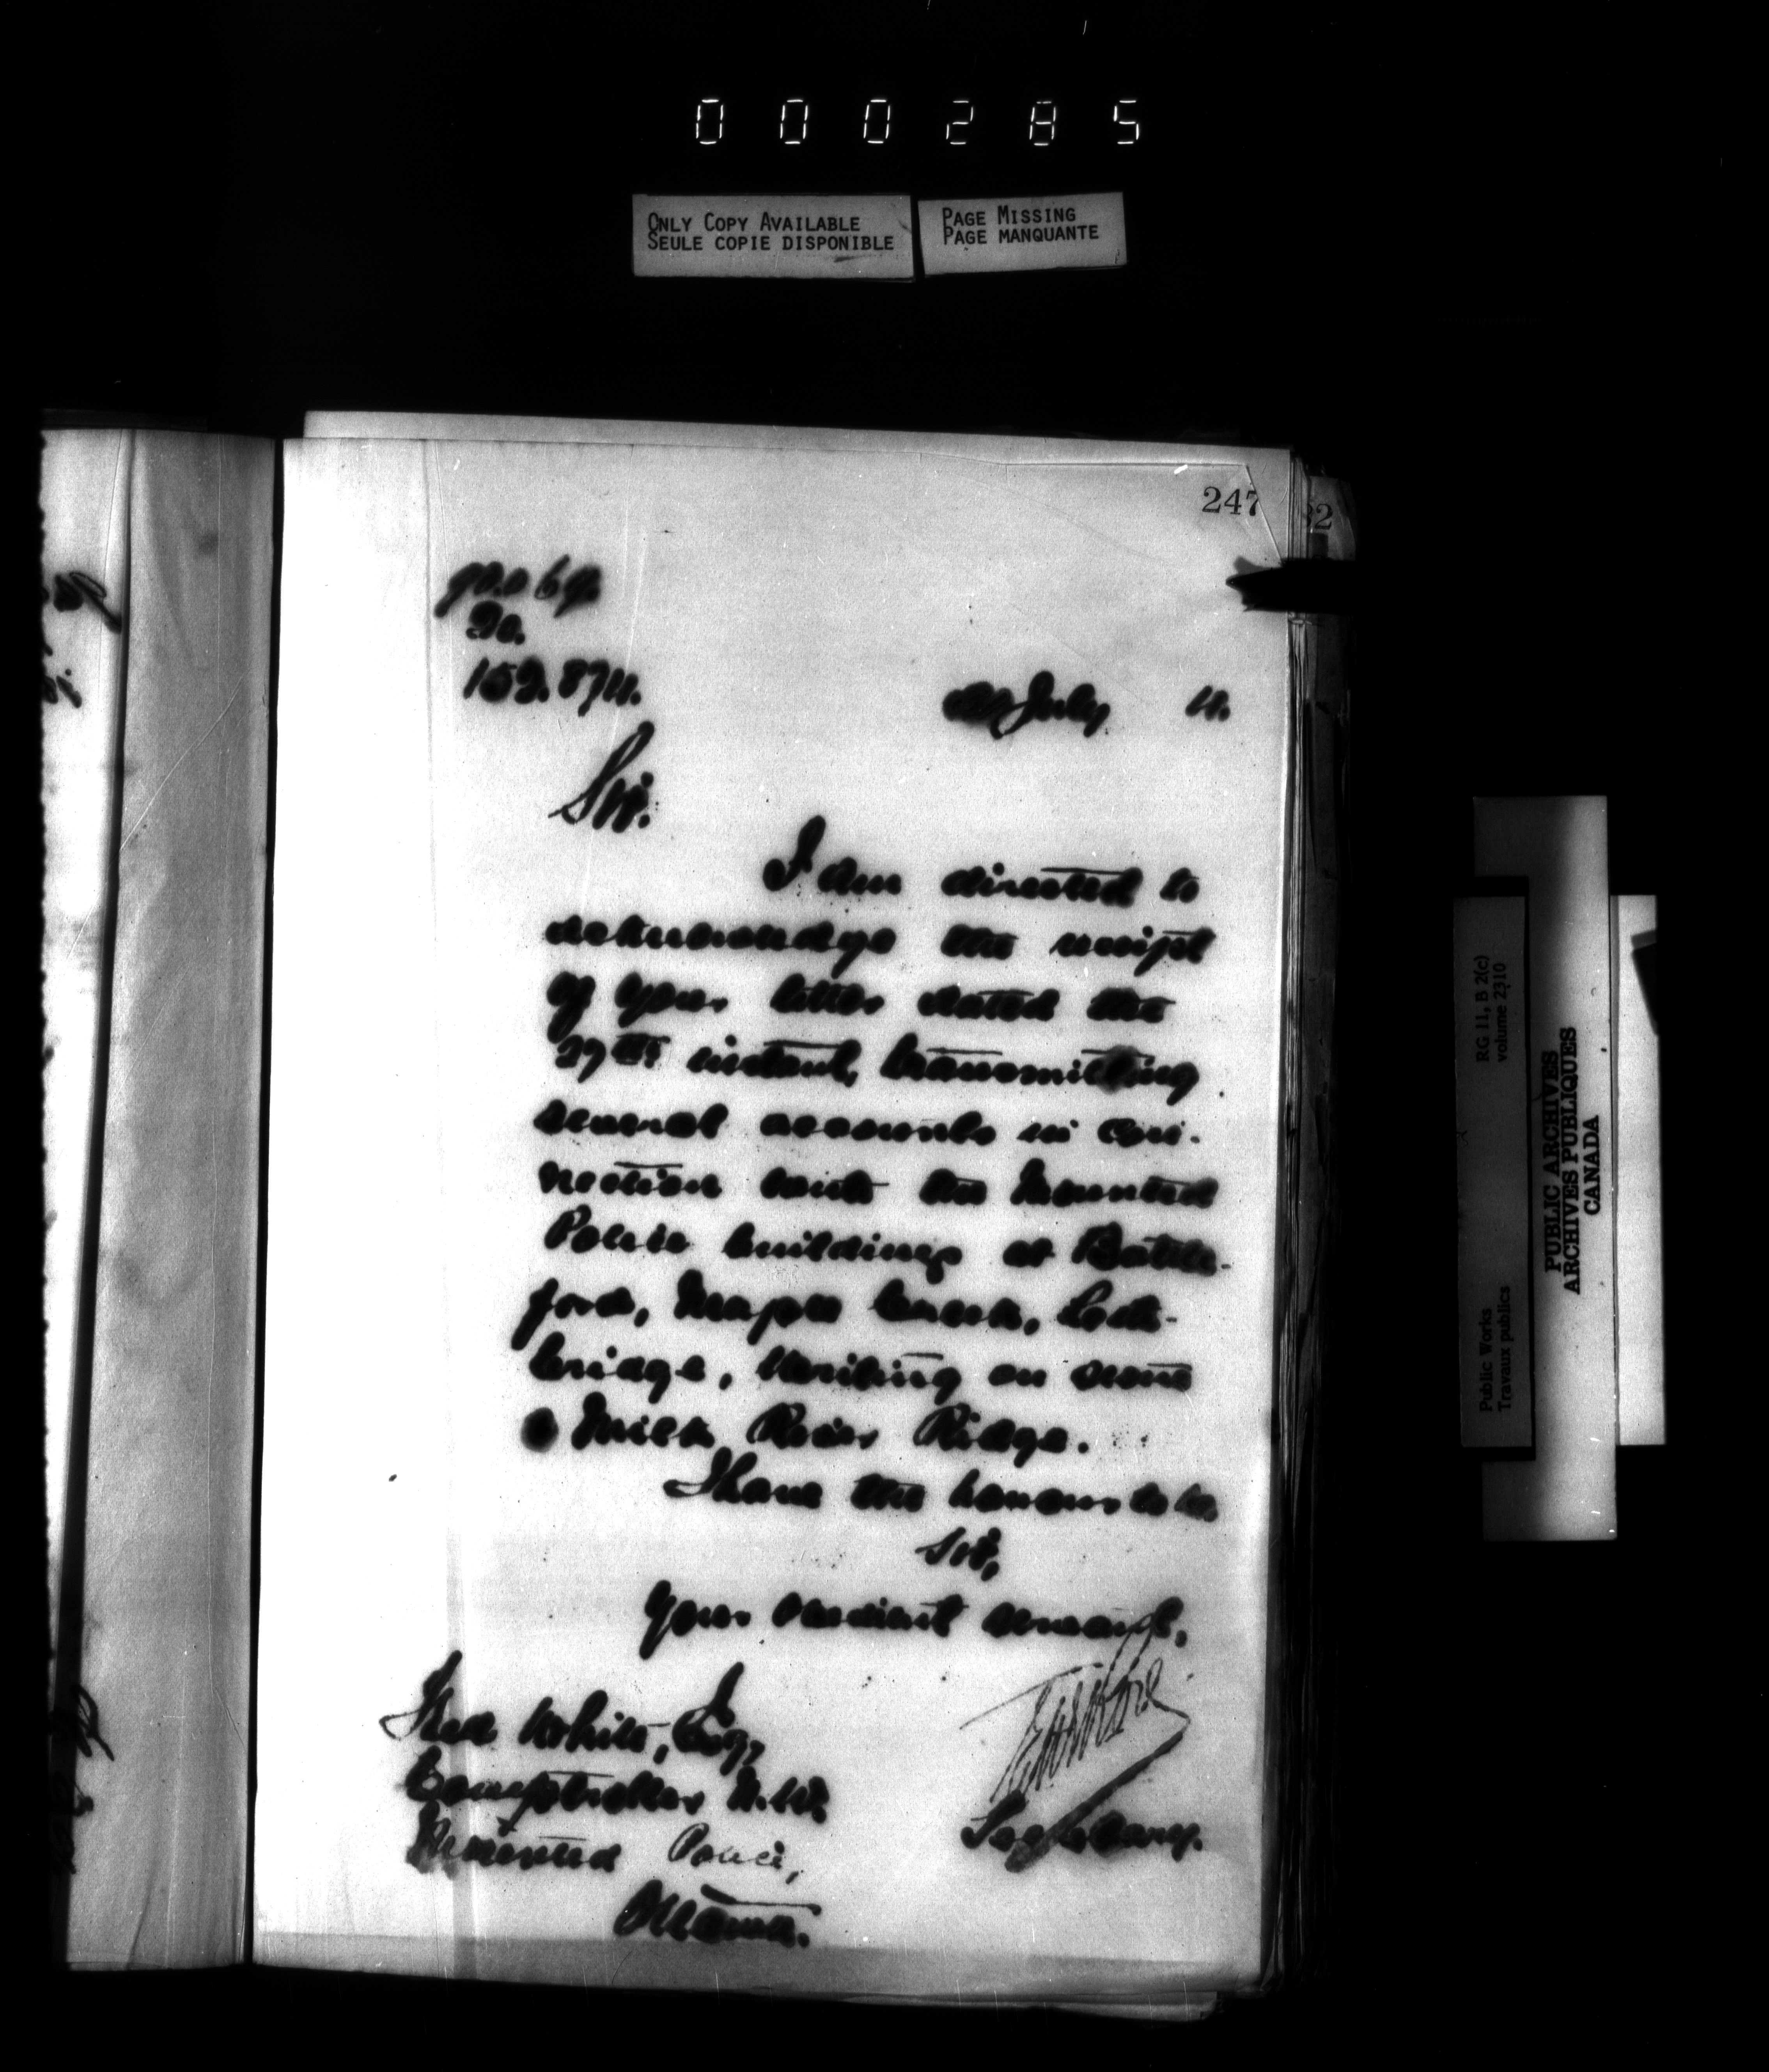 000285
ONLY COPY AVAILABLE
SEULE COPIE DISPONIBLE
PAGE MISSING
PAGE MANQUANTE
247
Sir.
July
I am directed to
acknowledge the receipt
of your letter dated the
27th instant, transmitting
several accounts in con-
nection with the Mounted
Police buildings at Battle-
ford, Maple Creek, Leth-
bridge, Writing on Stone
Milk River Ridge.
I have the honour to be
Sir,
Your obedient servant,
Fred White, Esq,
Comptroller N.W.
Mounted Police,
Ottawa.
Secretary.
RG 11, B 2(c)
volume 2310
Public Works
Travaux publics
PUBLIC ARCHIVES
ARCHIVES PUBLIQUES
CANADA